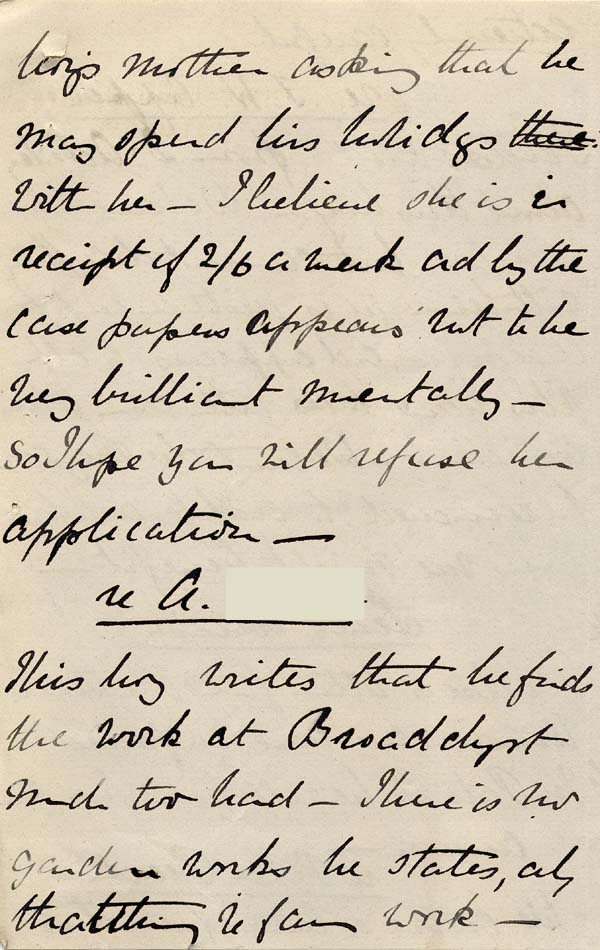 boy's mother asking that he
may spend his holidys there
with her – I believe she is in
receipt of 2/6 a week and by the
case papers appears not to be
very brilliant mentally –
So I hope you will refuse her
application –
re A.
This boy writes that he finds
the work at Broadclyst
much too hard – There is no
garden works he states, only
farm work –